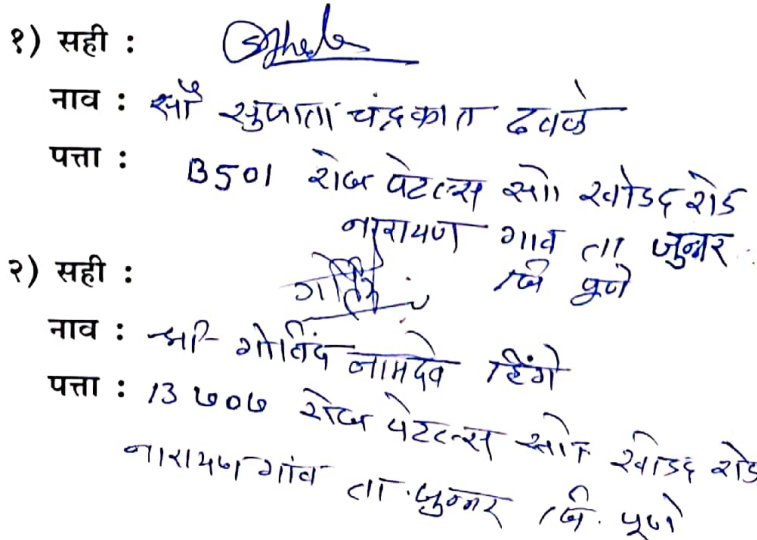 १) सही :
नाव : सौ सुजाता चंद्रकात ढवळे
पत्ता : B501 रोज पेटल्स सो। खोडद रोड
नारायण गाव ता जुन्नर
जि पूणे
२) सही :
नाव : श्री गोविंद नामदेव हिंगे
पत्ता : B ७०७ रोज पेटल्स सो खोडद रोड
नारायणगांव ता. जुन्नर जि. पूणे